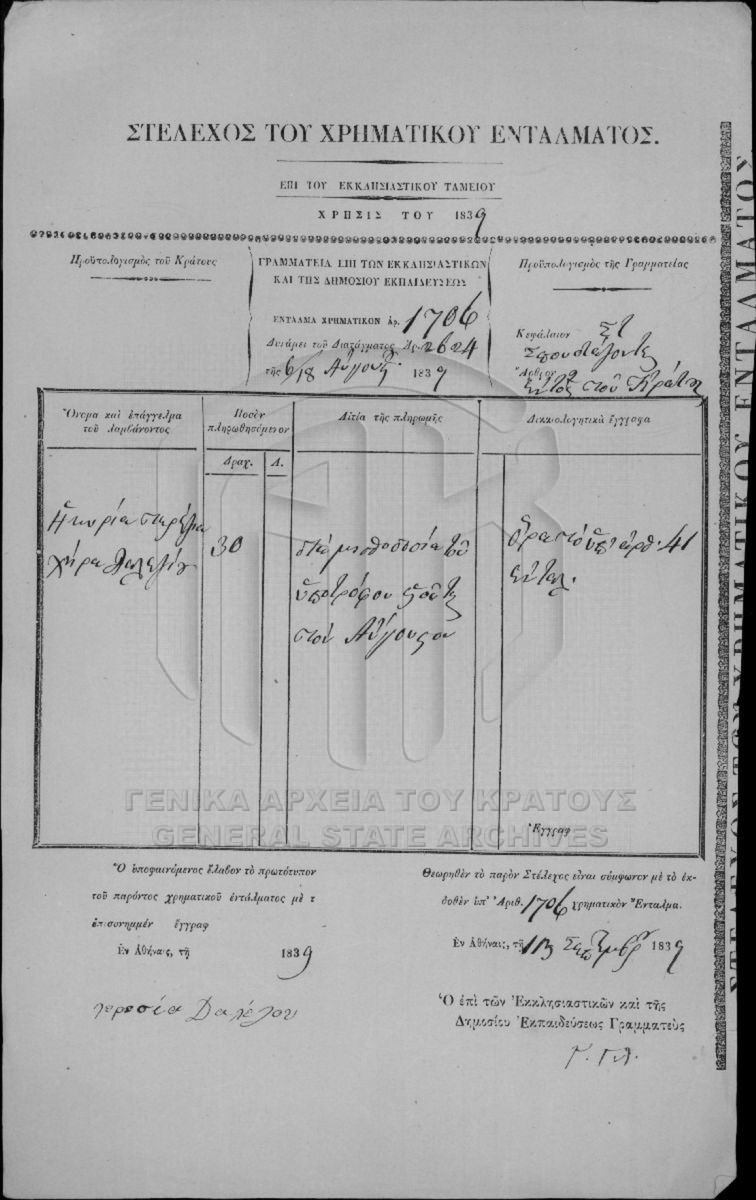 ΣΤΕΛΕΧΟΣ ΤΟΥ ΧΡΗΜΑΤΙΚΟΥ ΕΝΤΑΛΜΑΤΟΣ.
ΕΠΙ ΤΟΥ ΕΚΚΛΗΣΙΑΣΤΙΚΟΥ ΤΑΜΕΙΟΥ
ΧΡΗΣΙΣ ΤΟΥ 1839
Προϋπολογισμὸς τοῦ Κράτους
ΓΡΑΜΜΑΤΕΙΑ ΕΠΙ ΤΩΝ ΕΚΚΛΗΣΙΑΣΤΙΚΩΝ
ΚΑΙ ΤΗΣ ΔΗΜΟΣΙΟΥ ΕΚΠΑΙΔΕΥΣΕΩΣ
ΕΝΤΑΛΜΑ ΧΡΗΜΑΤΙΚΟΝ Ἀρ. 1706
Δυνάμει τοῦ Διατάγματος Ἀρ. 2624
τῆς 6/18 Αὐγούς 1839
Προϋπολογισμὸς τῆς Γραμματείας
Κεφάλαιον ΣΤ
Ἄρθρον
Ὄνομα καὶ ἐπάγγελμα
τοῦ λαμβάνοντος
Ποσὸν
πληρωθησόμενον
Δραχ. Λ.
Αἰτία τῆς πληρωμῆς
Δικαιολογητικὰ ἔγγραφα
Ἡ κυρία
χήρα
30
ὑποτρόφου
Αὔγουςον
41
Ἔγγραφ
ΓΕΝΙΚΑ ΑΡΧΕΙΑ ΤΟΥ ΚΡΑΤΟΥΣ
GENERAL STATE ARCHIVES
Ὁ ὑποφαινόμενος ἔλαβον τὸ πρωτότυπον
τοῦ παρόντος χρηματικοῦ ἐντάλματος μὲ τ
ἐπισυνημμέν ἔγγραφ
Ἐν Ἀθήναις, τῇ 1839
Δαλέλου
Θεωρηθὲν τὸ παρὸν Στέλεχος εἶναι σύμφωνον μὲ τὸ ἐκ-
δοθὲν ὑπ' Ἀριθ. 1706 χρηματικὸν Ἔνταλμα.
Ἐν Ἀθήναις, τῇ 1839
Ὁ ἐπὶ τῶν Ἐκκλησιαστικῶν καὶ τῆς
Δημοσίου Ἐκπαιδεύσεως Γραμματεὺς
Γ. Γλ.
ΣΤΕΛΕΧΟΣ ΤΟΥ ΧΡΗΜΑΤΙΚΟΥ ΕΝΤΑΛΜΑΤΟΣ